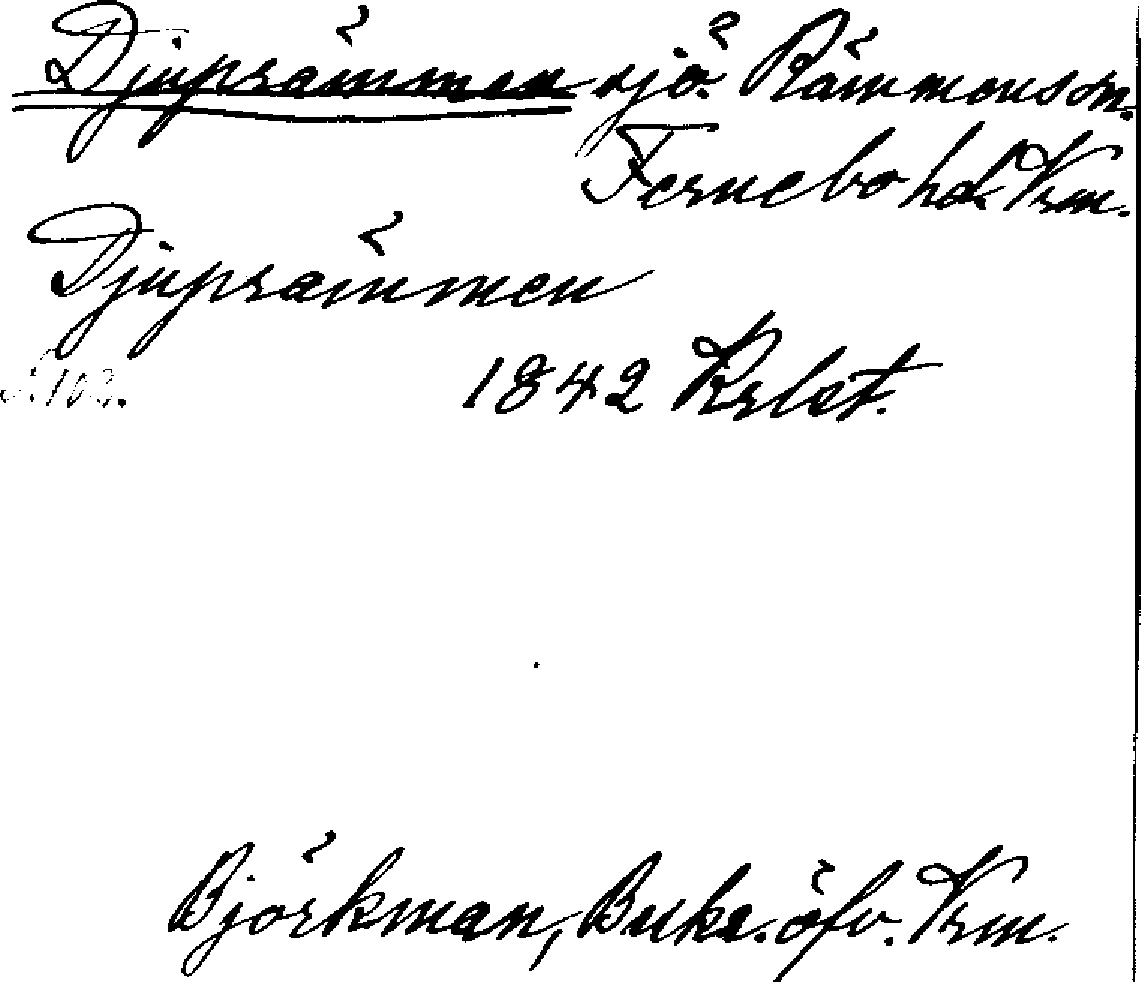 Djuprämmen sjö. Rämmens sn.
Fernebo hd. Vrm.
Djuprämmen
S. 103.
1842 Krlst.
Björkman, Beskr. öfv. Vrm.